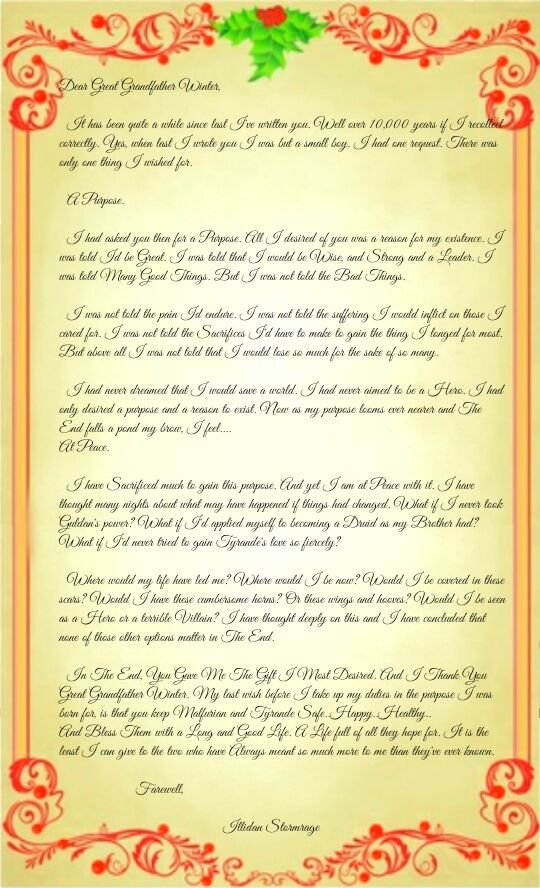 Dear Great Grandfather Winter,
It has been quite a while since last I've written you. Well over 10,000 years if I recollect
correctly. Yes, when last I wrote you I was but a small boy. I had one request. There was
only one thing I wished for.
A Purpose.
I had asked you then for a Purpose. All I desired of you was a reason for my existence. I
was told I'd be Great. I was told that I would be Wise, and Strong and a Leader. I
was told Many Good Things. But I was not told the Bad Things.
I was not told the pain I'd endure. I was not told the suffering I would inflict on those I
cared for. I was not told the Sacrifices I'd have to make to gain the thing I longed for most.
But above all I was not told that I would lose so much for the sake of so many.
I had never dreamed that I would save a world. I had never aimed to be a Hero. I had
only desired a purpose and a reason to exist. Now as my purpose looms ever nearer and The
End falls a pond my brow, I feel....
At Peace.
I have Sacrificed much to gain this purpose. And yet I am at Peace with it. I have
thought many nights about what may have happened if things had changed. What if I never took
Guldan's power? What if I'd applied myself to becoming a Druid as my Brother had?
What if I'd never tried to gain Tyrande's love so fiercely?
Where would my life have led me? Where would I be now? Would I be covered in these
scars? Would I have these cumbersome horns? Or these wings and hooves? Would I be seen
as a Hero or a terrible Villain? I have thought deeply on this and I have concluded that
none of those other options matter in The End.
In The End, You Gave Me The Gift I Most Desired. And I Thank You
Great Grandfather Winter. My last wish before I take up my duties in the purpose I was
born for, is that you keep Malfurian and Tyrande Safe..Happy..Healthy..
And Bless Them with a Long and Good Life. A Life full of all they hope for. It is the
least I can give to the two who have Always meant so much more to me than they've ever known.
Farewell,
Illidan Stormrage